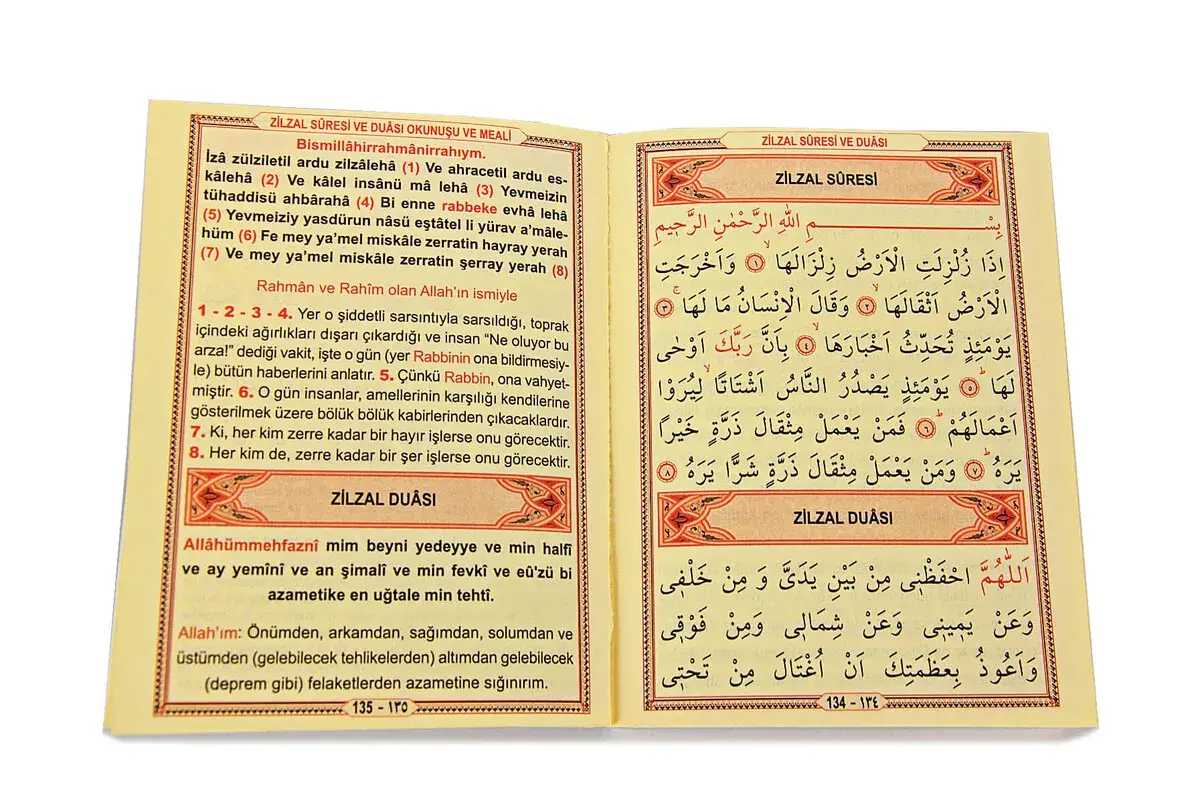 ZİLZAL SÛRESİ VE DUÂSI
ZİLZAL SÛRESİ
بِسْمِ اللهِ الرَّحْمٰنِ الرَّحٖيمِ
اِذَا زُلْزِلَتِ الْاَرْضُ زِلْزَالَهَا ۙ ﴿١﴾ وَاَخْرَجَتِ
الْاَرْضُ اَثْقَالَهَا ۙ ﴿٢﴾ وَقَالَ الْاِنْسَانُ مَا لَهَا ۚ ﴿٣﴾
يَوْمَئِذٍ تُحَدِّثُ اَخْبَارَهَا ۙ ﴿٤﴾ بِاَنَّ رَبَّكَ اَوْحٰى
لَهَا ۜ ﴿٥﴾ يَوْمَئِذٍ يَصْدُرُ النَّاسُ اَشْتَاتًا ۙ لِيُرَوْا
اَعْمَالَهُمْ ۜ ﴿٦﴾ فَمَنْ يَعْمَلْ مِثْقَالَ ذَرَّةٍ خَيْرًا
يَرَهُ ۜ ﴿٧﴾ وَمَنْ يَعْمَلْ مِثْقَالَ ذَرَّةٍ شَرًّا يَرَهُ ﴿٨﴾
ZİLZAL DUÂSI
اَللّٰهُمَّ احْفَظْنٖى مِنْ بَيْنِ يَدَىَّ وَ مِنْ خَلْفٖى
وَعَنْ يَمٖينٖى وَعَنْ شِمَالٖى وَمِنْ فَوْقٖى
وَاَعُوذُ بِعَظَمَتِكَ اَنْ اُغْتَالَ مِنْ تَحْتٖى
134 - ١٣٤
ZİLZAL SÛRESİ VE DUÂSI OKUNUŞU VE MEALİ
Bismillâhirrahmânirrahıym.
İzâ zülziletil ardu zilzâlehâ (1) Ve ahracetil ardu es-
kâlehâ (2) Ve kâlel insânü mâ lehâ (3) Yevmeizin
tühaddisü ahbârahâ (4) Bi enne rabbeke evhâ lehâ
(5) Yevmeiziy yasdürun nâsü eştâtel li yürav a'mâle-
hüm (6) Fe mey ya'mel miskâle zerratin hayray yerah
(7) Ve mey ya'mel miskâle zerratin şerray yerah (8)
Rahmân ve Rahîm olan Allah'ın ismiyle
1 - 2 - 3 - 4. Yer o şiddetli sarsıntıyla sarsıldığı, toprak
içindeki ağırlıkları dışarı çıkardığı ve insan “Ne oluyor bu
arza!” dediği vakit, işte o gün (yer Rabbinin ona bildirmesiy-
le) bütün haberlerini anlatır. 5. Çünkü Rabbin, ona vahyet-
miştir. 6. O gün insanlar, amellerinin karşılığı kendilerine
gösterilmek üzere bölük bölük kabirlerinden çıkacaklardır.
7. Ki, her kim zerre kadar bir hayır işlerse onu görecektir.
8. Her kim de, zerre kadar bir şer işlerse onu görecektir.
ZİLZAL DUÂSI
Allâhümmehfaznî mim beyni yedeyye ve min halfî
ve ay yemînî ve an şimalî ve min fevkî ve eû'zü bi
azametike en uğtale min tehtî.
Allah'ım: Önümden, arkamdan, sağımdan, solumdan ve
üstümden (gelebilecek tehlikelerden) altımdan gelebilecek
(deprem gibi) felaketlerden azametine sığınırım.
135 - ١٣٥